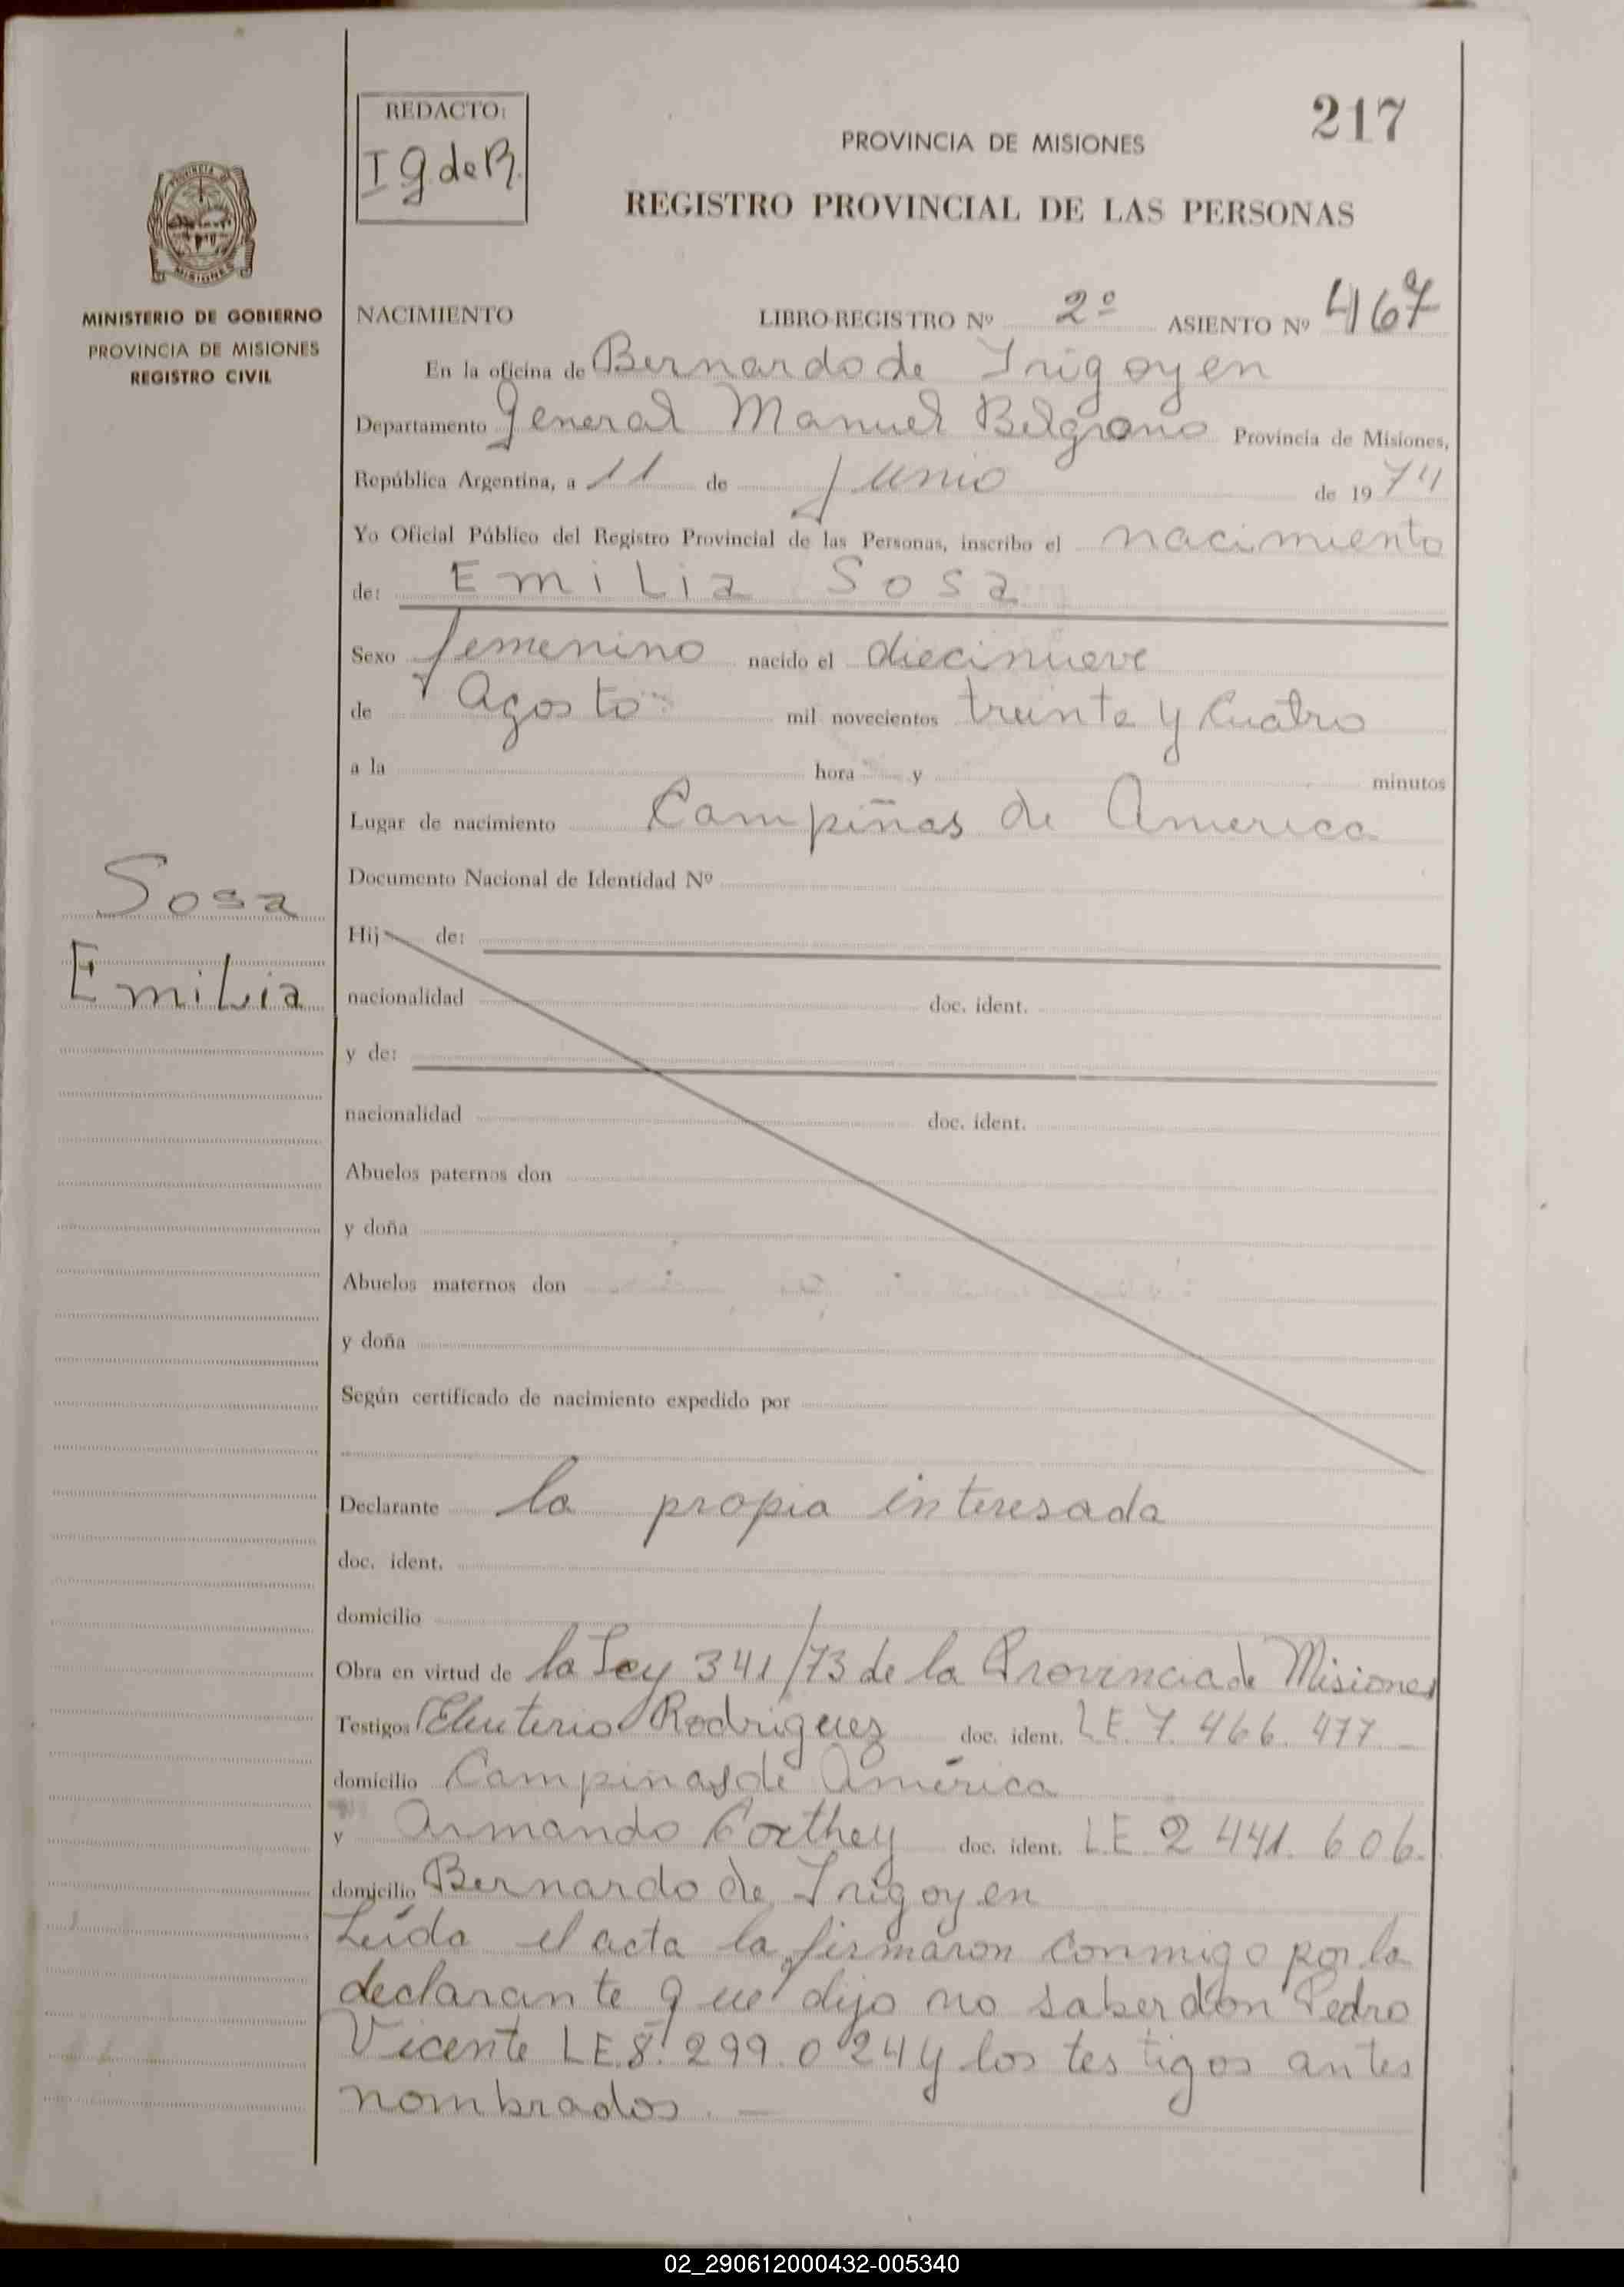 REDACTO:
I g. de R.
217
PROVINCIA DE MISIONES
REGISTRO PROVINCIAL DE LAS PERSONAS
PROVINCIA DE
MISIONES
MINISTERIO DE GOBIERNO
PROVINCIA DE MISIONES
REGISTRO CIVIL
NACIMIENTO LIBRO-REGISTRO Nº 2º ASIENTO Nº 467
En la oficina de Bernardo de Irigoyen
Departamento General Manuel Belgrano Provincia de Misiones,
República Argentina, a 11 de Junio de 1974
Yo Oficial Público del Registro Provincial de las Personas, inscribo el nacimiento
de: Emilia Sosa
Sexo femenino nacido el diecinueve
de Agosto mil novecientos treinta y cuatro
a la hora y minutos
Lugar de nacimiento Campiñas de America
Documento Nacional de Identidad Nº
Sosa
Emilia
Hij de:
nacionalidad doc. ident.
y de:
nacionalidad doc. ident.
Abuelos paternos don
y doña
Abuelos maternos don
y doña
Según certificado de nacimiento expedido por
Declarante la propia interesada
doc. ident.
domicilio
Obra en virtud de la Ley 341/73 de la Provincia de Misiones
Testigos Eleuterio Rodrigues doc. ident. LE. 7.466.477
domicilio Campiñas de América
y Armando Corthey doc. ident. L.E. 2 441. 606.
domicilio Bernardo de Irigoyen
Leída el acta la firmaron conmigo por la
declarante que dijo no saber don Pedro
Vicente LE.8.299.024 y los testigos antes
nombrados. —
02_290612000432-005340